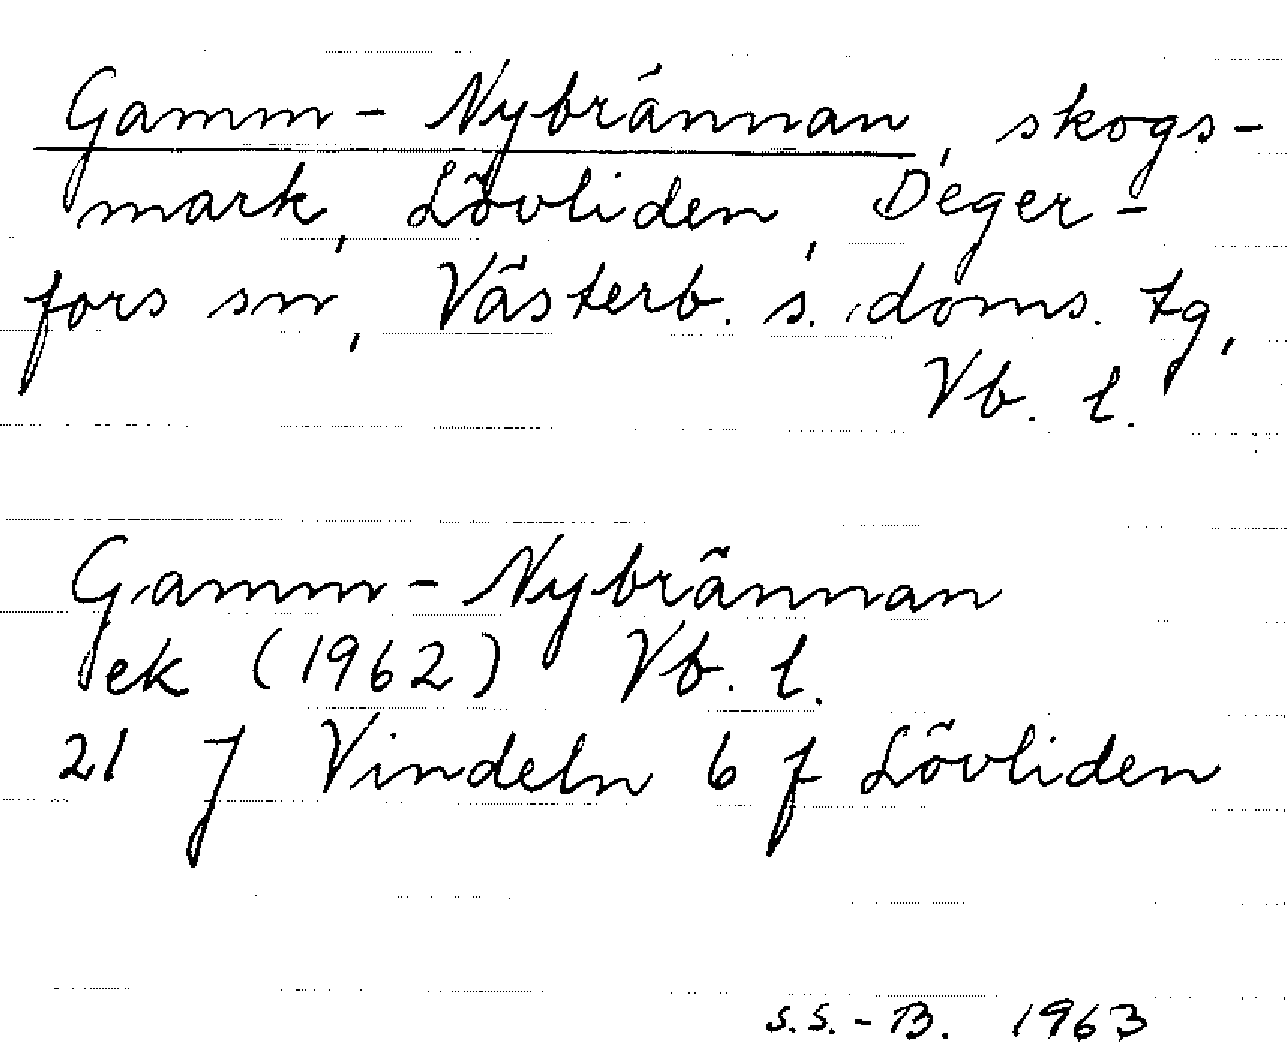 Gamm-Nybrännan, skogs-
mark, Lövliden, Deger-
fors sn, Västerb. s. doms. tg,
Vb. l.
Gamm-Nybrännan
ek (1962) Vb. l.
21 J Vindeln 6 f Lövliden
S.S.-B. 1963